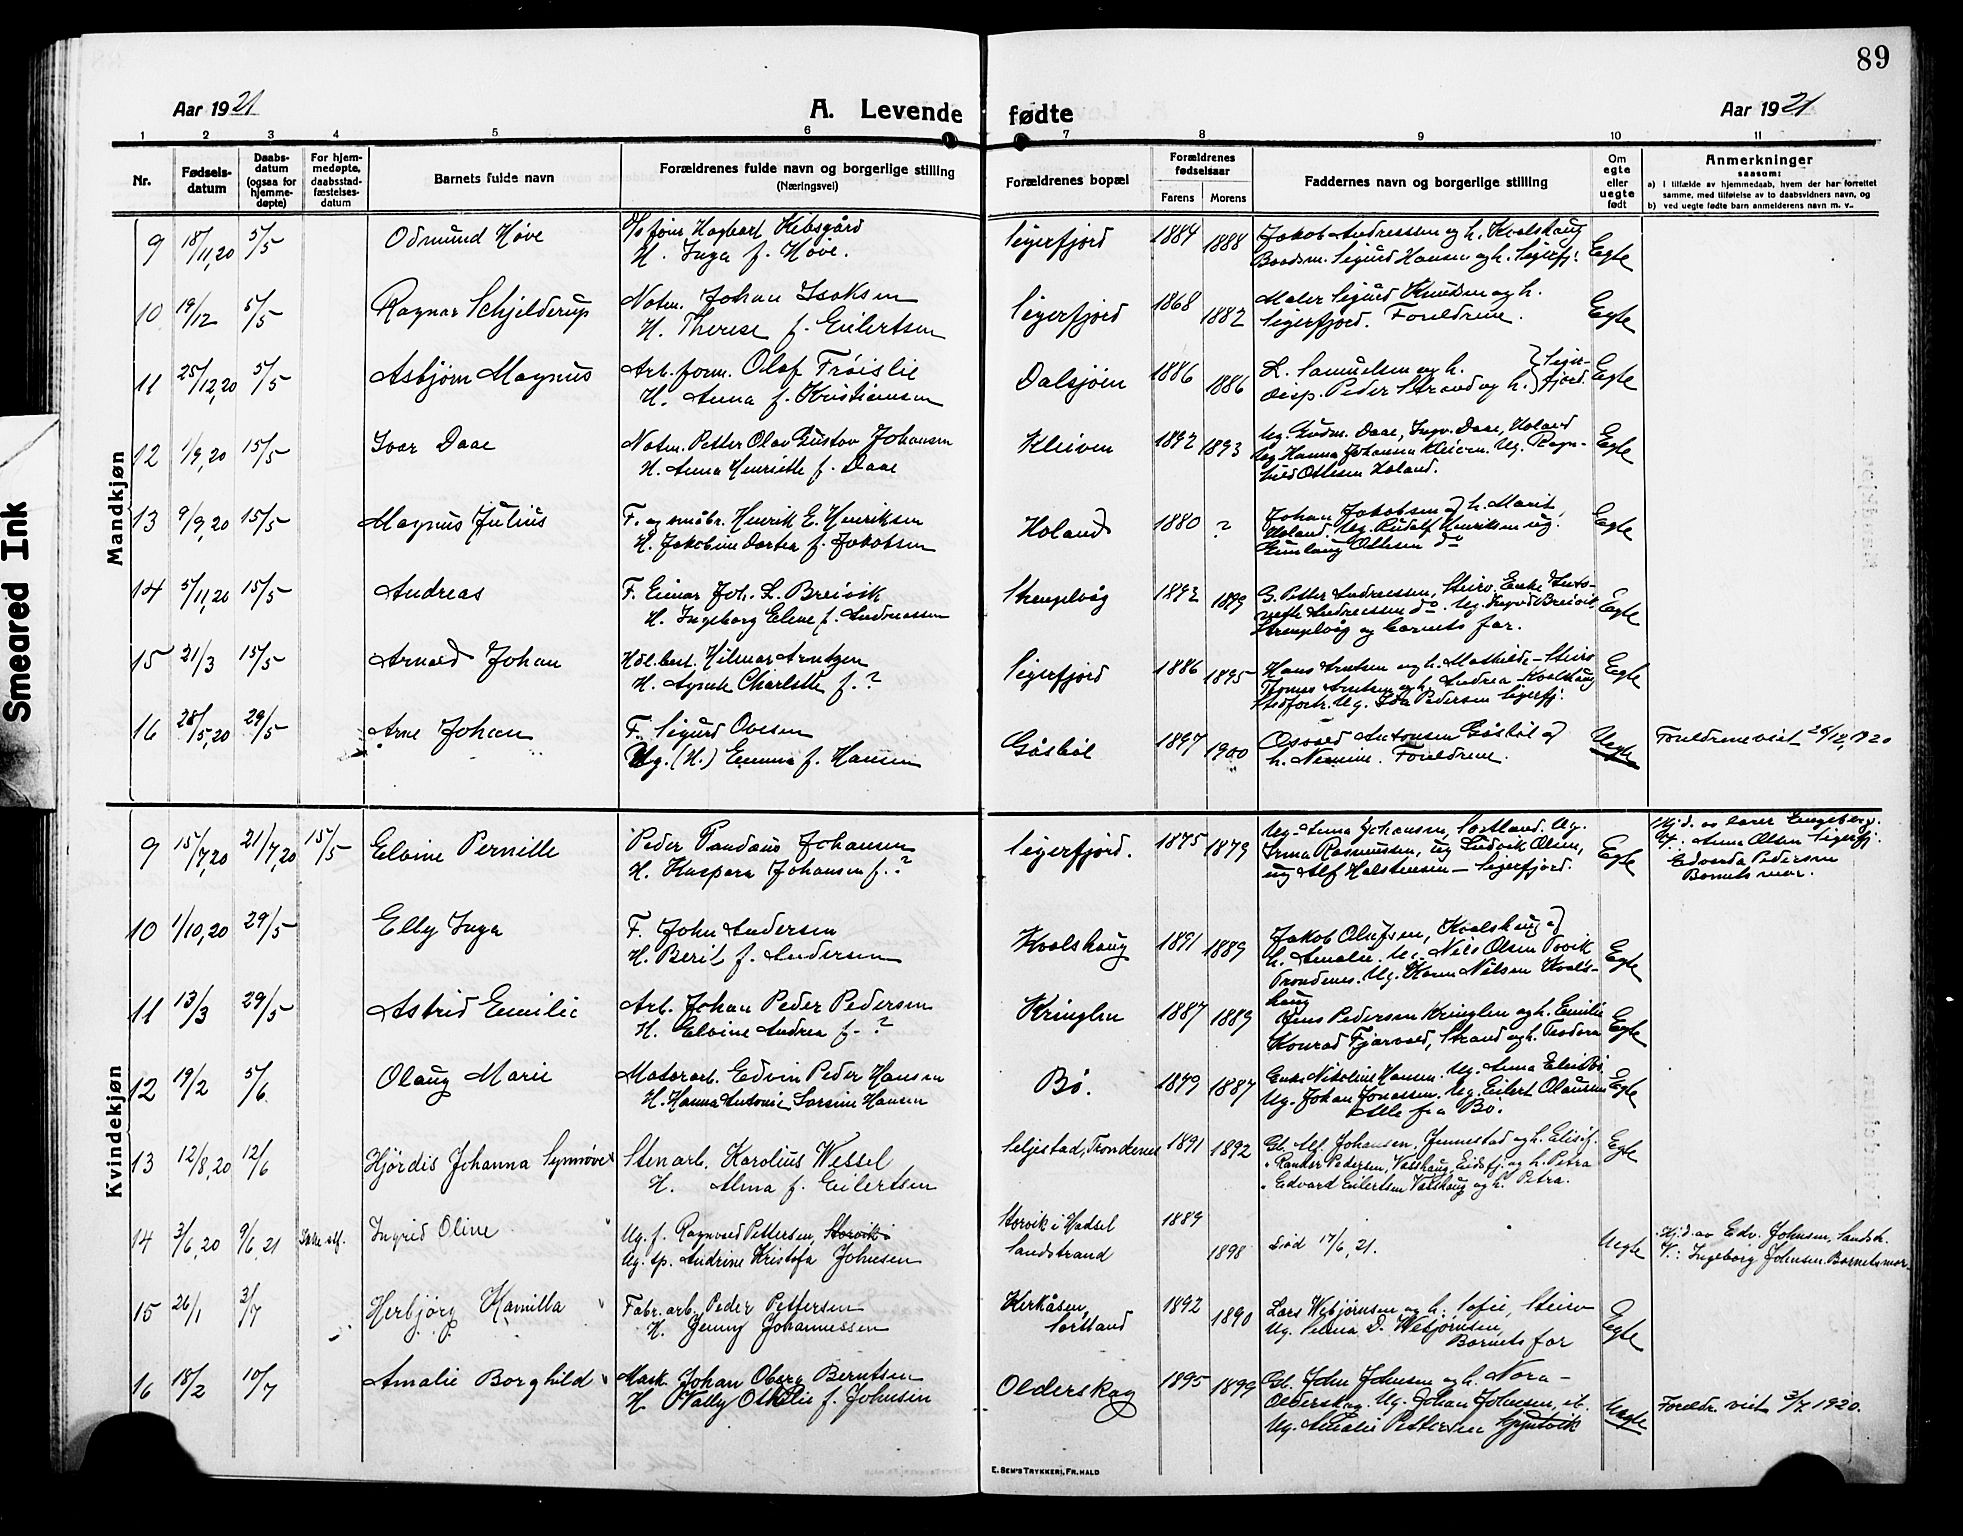 89
Aar 1921
A. Levende fødte
Aar 1921
1 2 3 4 5 6 7 8 9 10 11
Nr.
Fødsels-
datum
Daabs-
datum
(ogsaa for
hjemme-
døpte)
For hjem-
medøpte,
daabsstad-
fæstelses-
datum
Barnets fulde navn
Forældrenes fulde navn og borgerlige stilling
(Næringsvei)
Forældrenes bopæl
Forældrenes
fødselsaar
Farens Morens
Faddernes navn og borgerlige stilling
Om
egte
eller
uegte
født
Anmerkninger
saasom:
a) i tilfælde av hjemmedaab, hvem der har forrettet
samme, med tilføielse av to daabsvidners navn, og
b) ved uegte fødte barn anmelderens navn m. v.
Smeared Ink
Mandkjøn
9 18/11,20 5/5 Odmund Høve Hagbart Kibsgård Sigerfjord 1884 1888 Jakob Andreassen og h. Kvalshaug Egte
H. Inga f. Høve. Baadsm. Sigurd Hansen og h. Sigerfj.
10 19/12 5/5 Ragnar Schjelderup Notm. Johan Isaksen Sigerfjord 1868 1882 Maler Sigurd Knudsen og h. Egte
H. Therese f. Eilertsen Sigerfjord. Foreldrene.
11 25/12,20 5/5 Asbjørn Magnus Arb.form. Olaf Frøislie Dalsjøen 1886 1886 L. Samuelsen og h. Siger- Egte
H. Anna f. Kristiansen Disp. Peder Strand og h. fjord.
12 1/9,20 15/5 Ivar Daae Notm. Petter Olav Gustav Johansen Kleiven 1892 1893 Ug. Gudm. Daae, Ingv. Daae, Holand Egte
H. Anna Henriette f. Daae Ug Hanna Johanna Kleiven. Ug. Ragn-
hild Ottesen Holand.
13 9/9,20 15/5 Magnus Julius F. og småbr. Henrik E. Henriksen Holand 1880 ? Johan Jakobsen og h. Marit, Egte
H. Jakobine Dortea f. Jakobsen Holand. Ug. Rudolf Henriksen ug.
Gunlaug Ottesen do
14 5/11,20 15/5 Andreas F. Einar Joh. L. Breivik Strengelvåg 1892 1899 G. Petter Andreassen, Steiro. Enke Ants- Egte
H. Ingeborg Eline f. Andreassen nette Andreassen do. Ug. Ingvd Breivik
Strengelvåg og barnets far.
15 21/3 15/5 Arnold Johan Hdl.best. Hilmar Arntzen Sigerfjord 1886 1895 Hans Arntsen og h. Mathilde - Steiro Egte
H. Agnete Charlotte f. ? Tomas Arntsen og h. Andrea Kvalshaug
Stedfortr. Ug. Ida Pedersen Sigerfj.
16 28/5,20 29/5 Arne Johan F. Sigurd Ovesen Gåsbøl 1897 1900 Osvald Antonsen Gåsbøl og Uegte Foreldrene viet 26/12,1920
Ug. (H.) Emma f. Hansen h. Nemine. Foreldrene.
Kvindekjøn
9 15/7,20 21/7,20 15/5 Elvine Pernille Peder Pandaus Johansen Sigerfjord. 1875 1879 Ug. Anna Johansen, Sortland. Ug. Egte Hj.d. av lærer Engeberg.
H. Kaspara Johansen f. ? Irma Rasmussen, ug Ludvik Olsen, V.: Anna Olsen Sigerfj.
ug Alf Halstensen - Sigerfjord. Edvarda Pedersen
Barnets mor.
10 1/10,20 29/5 Elly Inga F. John Andersen Kvalshaug 1891 1889 Jakob Olufsen, Kvalshaug og Egte
H. Berit f. Andersen h. Amalie. Ug. Nils Olsen
Trondenes. Ug. Karen Nilsen Kvals-
haug
11 13/3 29/5 Astrid Emilie Arb. Johan Peder Pedersen Kringlen 1887 1889 Jens Pedersen Kringlen og h. Emilie Egte
H. Elvine Andrea f. ? Konrad Fjærvold, Strand og h. Teodora
12 19/2 5/6 Olaug Marie Motorarb. Edvin Peder Hansen Bø. 1879 1887 Enke Nikoline Hansen. Ug. Anna Elise Bø. Egte
H. Hanna Antonie Sarsine Hansen Ug. Johan Jonassen. Ug. Eilert Olaussen
Alle fra Bø.
13 12/8,20 12/6 Hjördis Johanna Synnøve Stenarb. Karolius Wessel Seljestad, Trondenes 1891 1892 Gb. Alf. Johansen, Jennestad og h. Elisif. Egte
H. Alma f. Eilertsen " Ranker Pedersen, Vasshaug, Eidsfj. og h. Petra
" Edvard Eilertsen Vasshaug og h. Petra.
14 3/6,20 9/6,21 Ingrid Oline Ug. f. Ragnvald Pettersen, Storvik i Storvik i Hadsel 1889 Uegte Hj.d. av Edv. Johnsen, Sandstr.
Ug. sp. Andrine Kristofa Johnsen Sandstrand 1898 Død 17/6,21. V.: Ingeborg Johnsen. Barnets mor.
15 26/1 3/7 Herbjørg Kamilla Fabr.arb. Peder Pettersen Kirkåsen, 1892 1890 Lars Webjørnsen og h. Sofie, Steiro Egte
H. Jenny Johannessen Sortland Ug. Selma D. Webjørnsen,
Barnets far
16 18/2 10/7 Amalie Borghild Mask. Johan Oberg Berntsen Olderskog 1895 1899 Gb. John Johnsen og h. Nora - Uegte Foreldr. viet 3/7 1920.
H Wally Othelie f. Johnsen Olderskog. Ug. Johan Johnsen, ib.
Ug. Amalie Pettersen
E. SEM'S TRYKKERI, FR.HALD